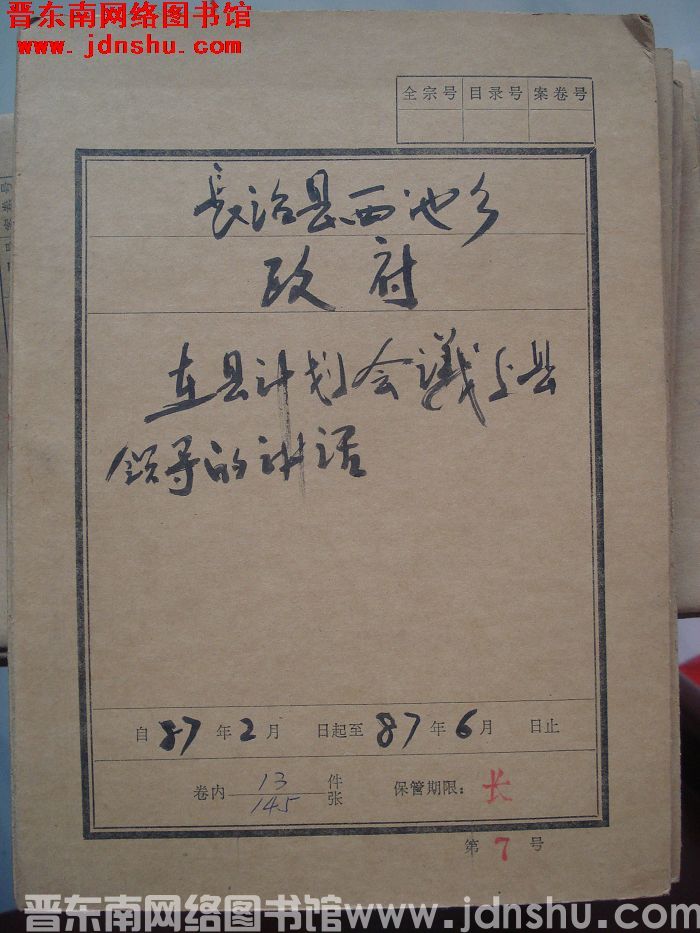 晋东南网络图书馆
www.jdnshu.com
全宗号 目录号 案卷号
長治县西池乡
政府
在县计划会議上县
领导的讲话
自87年2月 日起至87年6月 日止
卷内 13 件
145 张
保管期限：长
第7号
晋东南网络图书馆 www.jdnshu.com